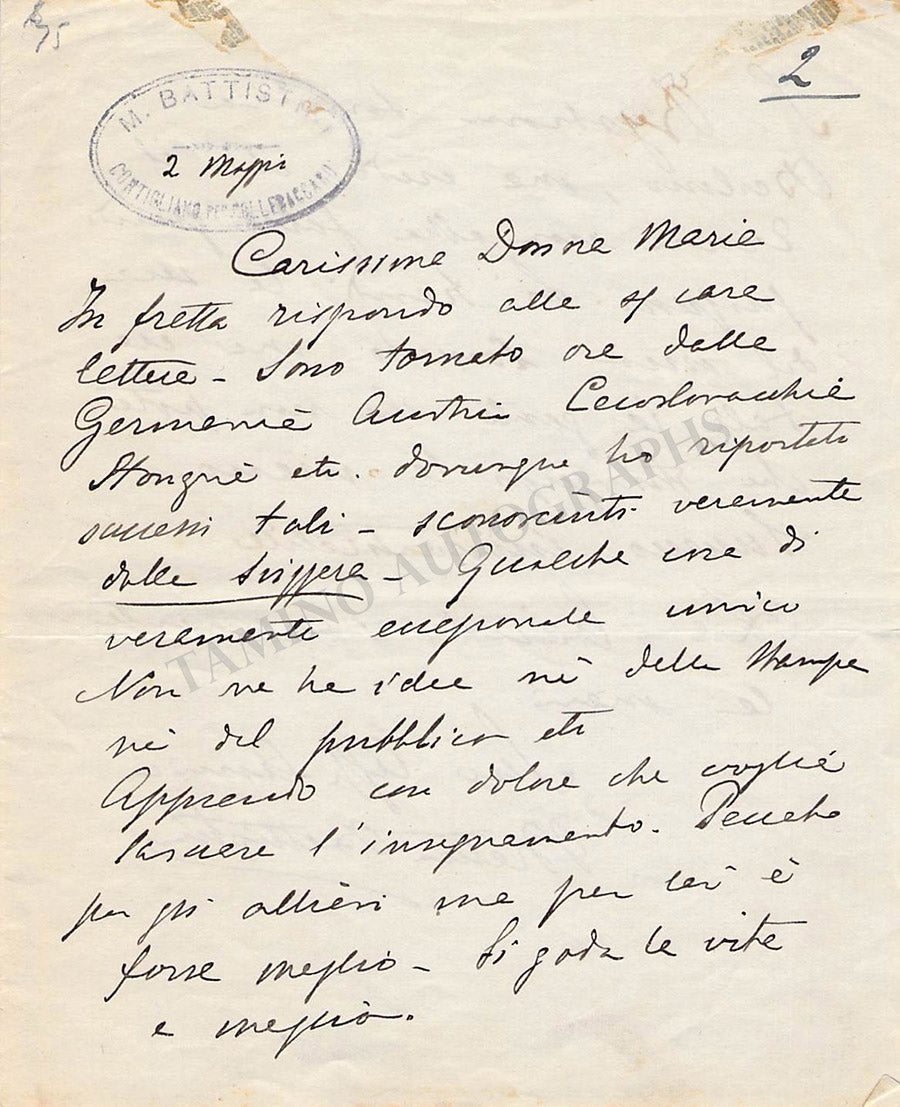 2
M. BATTISTINI
2 Maggio
CONTIGLIANO PER COLLEBACCARO
Carissima Donna Maria
In fretta rispondo alle sʃ care
lettere – Sono tornato ora dalla
Germania Austria Cecoslovacchia
Hongria etc. dovunque ho riportati
successi tali – sconosciuti veramente
dalla Svizzera – Qualche cosa di
veramente eccezionale unico
Non ne ha idea nè della Stampa
nè del pubblico etc
Apprendo con dolore che voglia
lasciare l'insegnamento. Peccato
per gli allievi ma per lei è
forse meglio – Si goda la vita
e meglio.
TAMINO AUTOGRAPHS